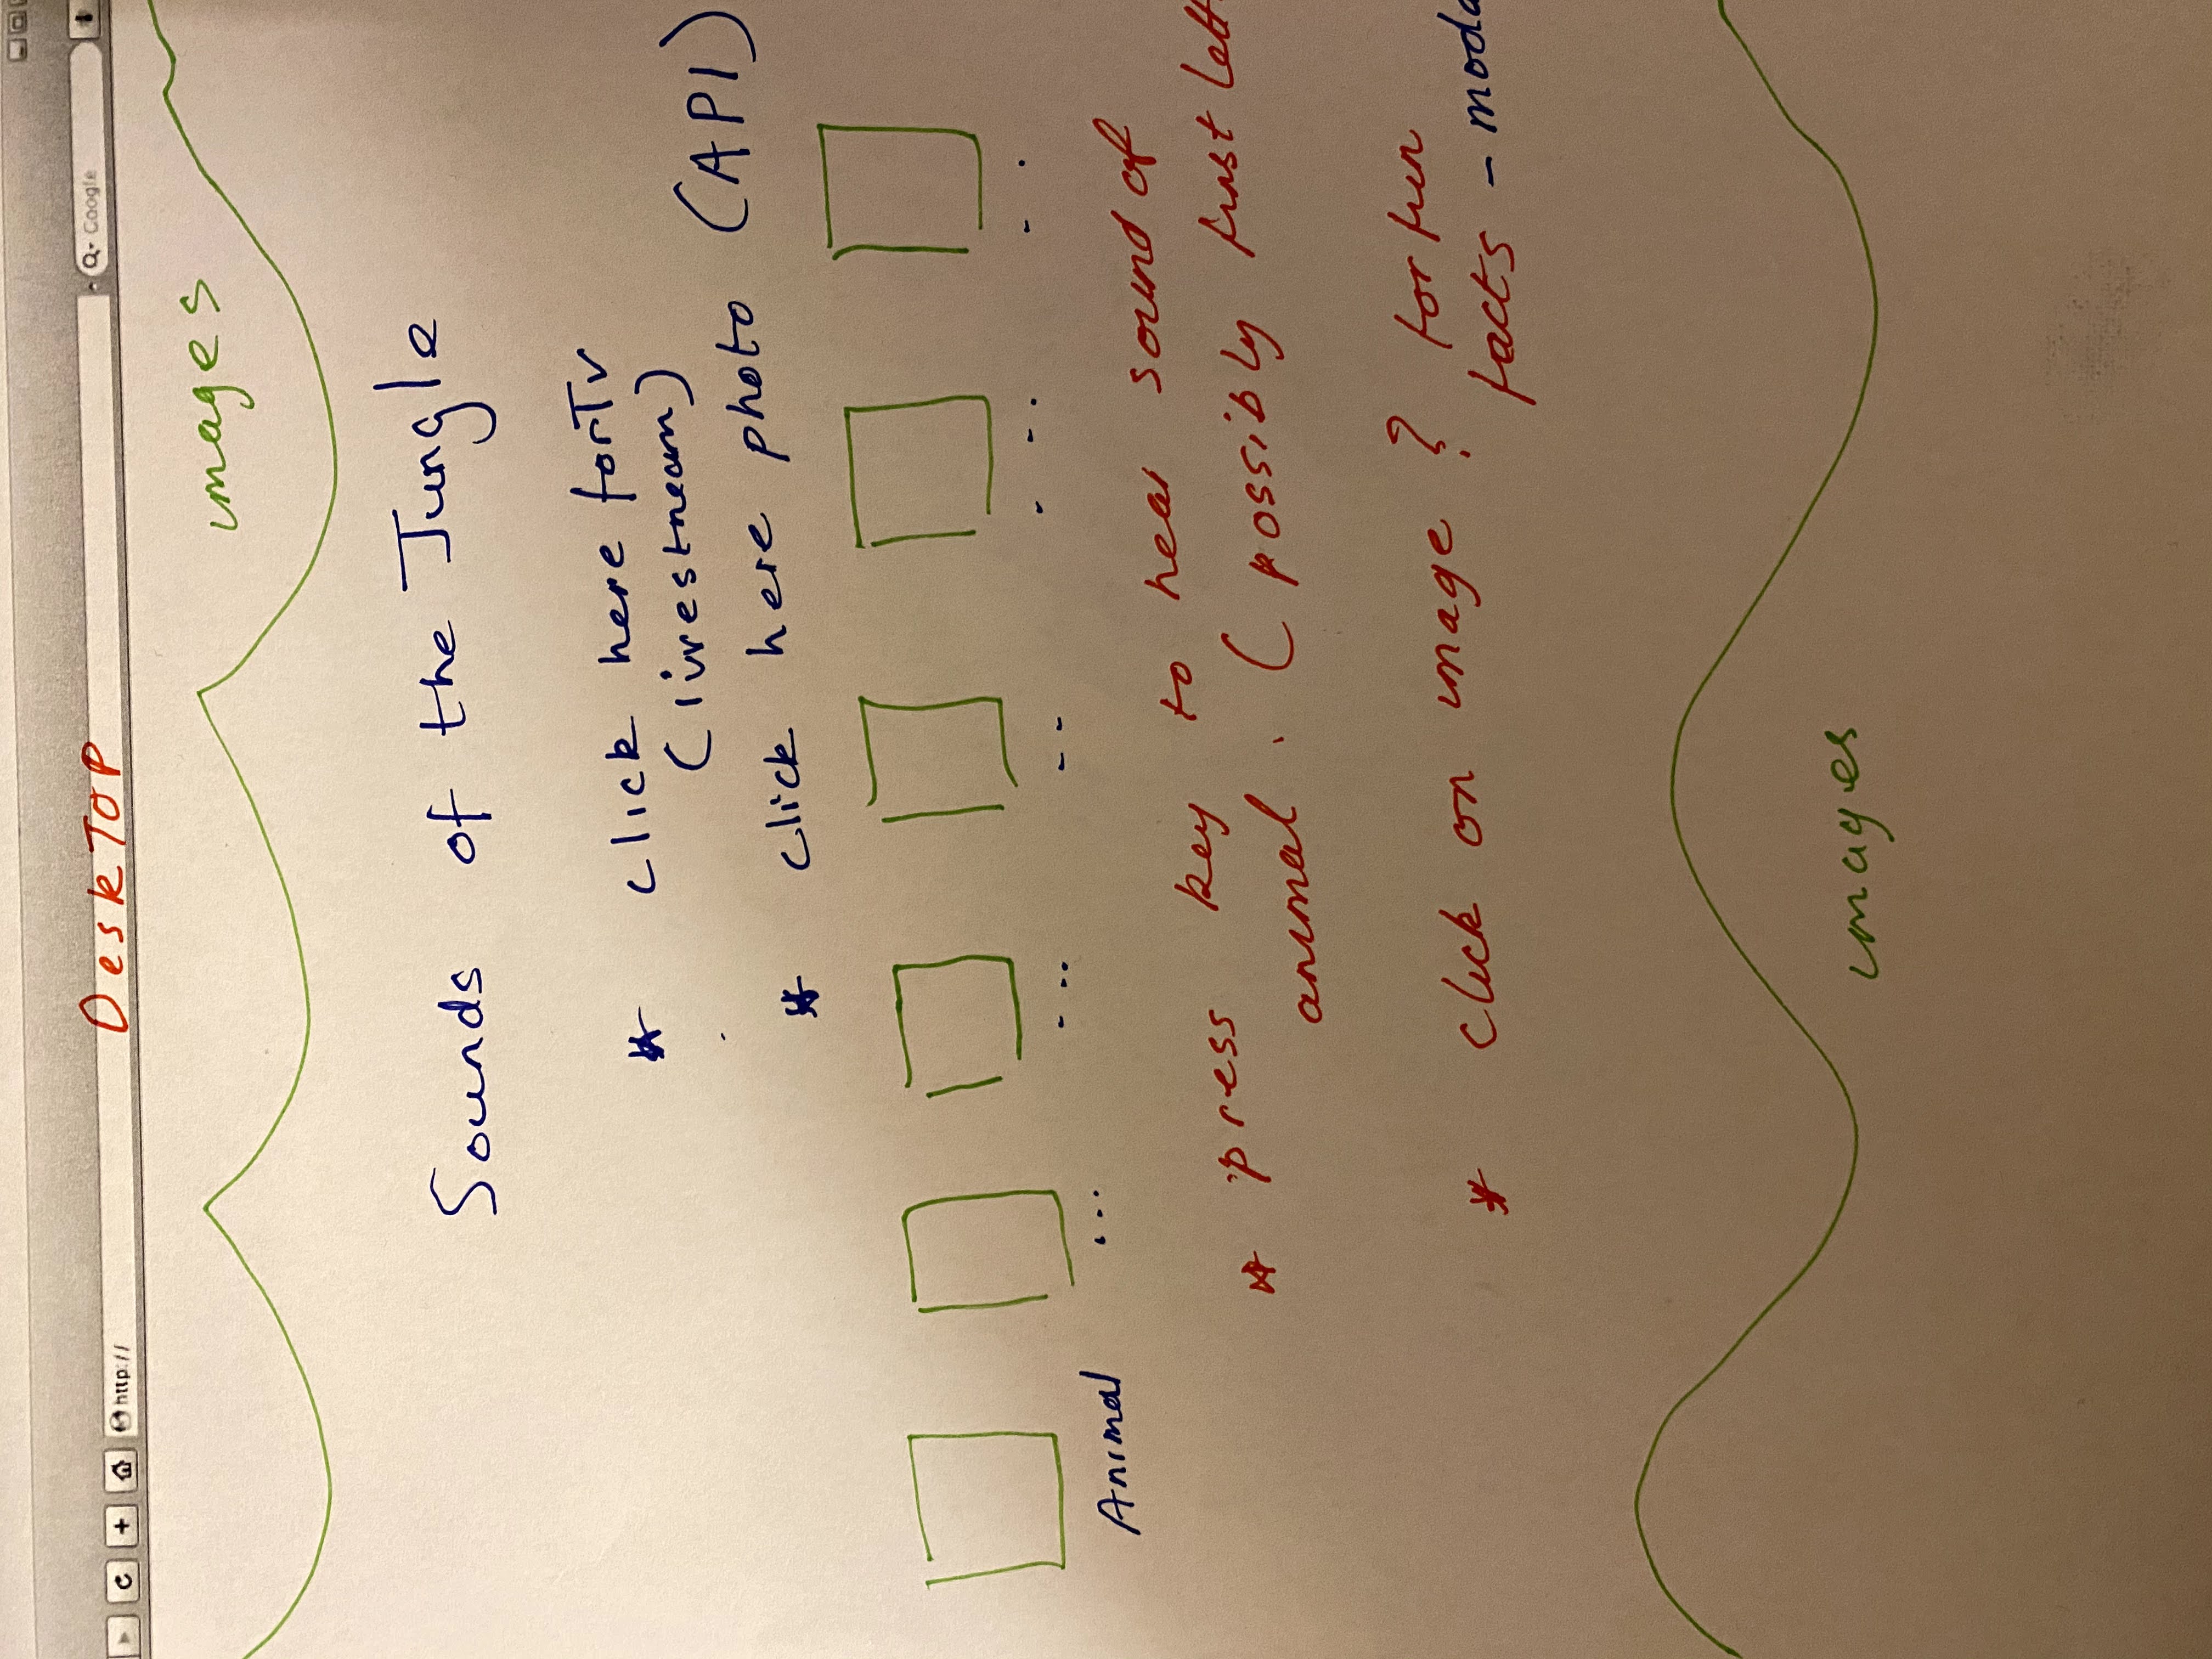 DeskTOP
http://
Google
images
Sounds of the Jungle
* click here for Tv
(livestream)
* click here photo (API)
Animal
...
- ..
- -
- - .
- .
* press key to hear sound of
animal. (possibly first lett
* click on image ? for fun
facts - moda
images